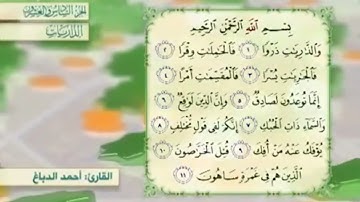 الجزء السادس والعشرون
الذاريات
بِسْمِ اللَّهِ الرَّحْمَٰنِ الرَّحِيمِ
وَالذَّارِيَاتِ ذَرْوًا ١ فَالْحَامِلَاتِ وِقْرًا ٢
فَالْجَارِيَاتِ يُسْرًا ٣ فَالْمُقَسِّمَاتِ أَمْرًا ٤
إِنَّمَا تُوعَدُونَ لَصَادِقٌ ٥ وَإِنَّ الدِّينَ لَوَاقِعٌ ٦
وَالسَّمَاءِ ذَاتِ الْحُبُكِ ٧ إِنَّكُمْ لَفِي قَوْلٍ مُخْتَلِفٍ ٨
يُؤْفَكُ عَنْهُ مَنْ أُفِكَ ٩ قُتِلَ الْخَرَّاصُونَ ١٠
الَّذِينَ هُمْ فِي غَمْرَةٍ سَاهُونَ ١١
القارئ: أحمد الدباغ